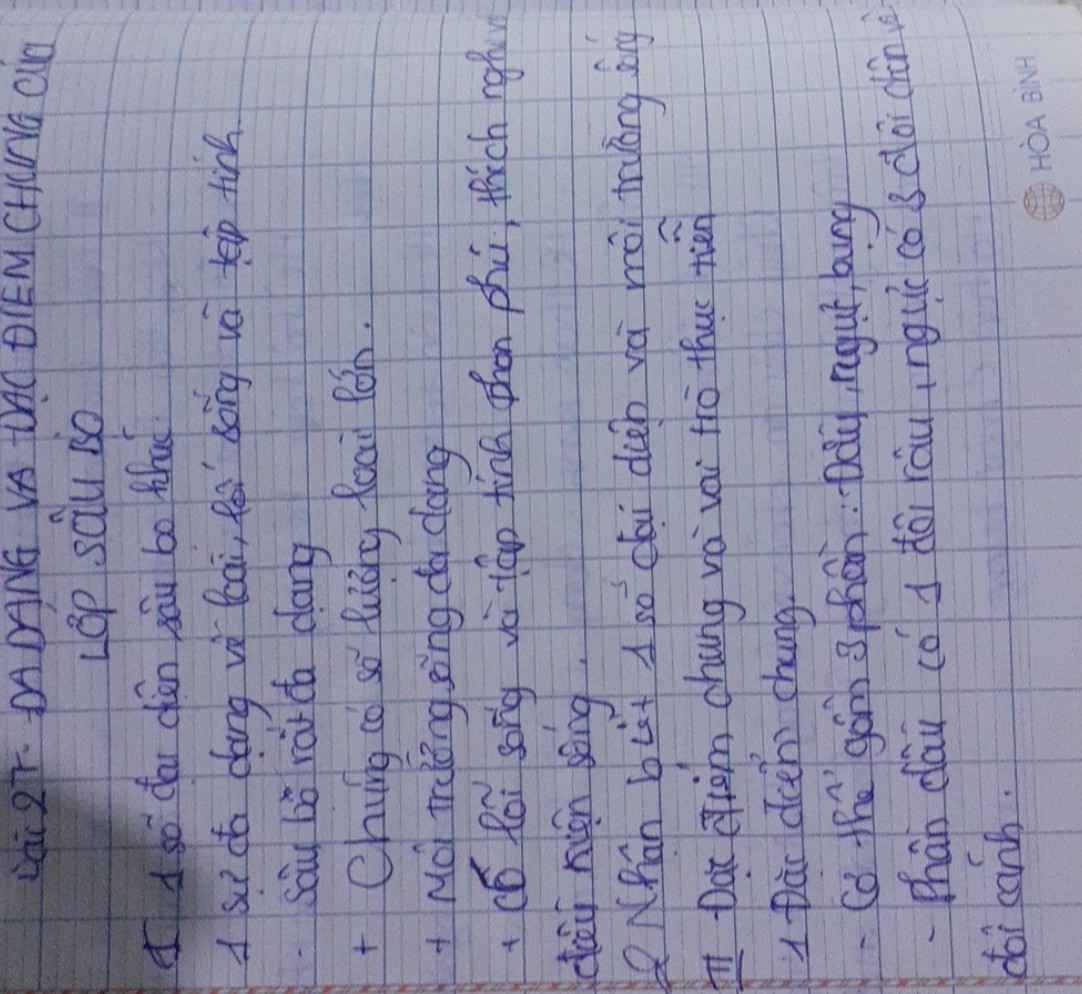 Bài 27- ĐA DẠNG VÀ ĐẶC ĐIỂM CHUNG CỦA
LỚP SÂU BỌ
I 1 số đại diện sâu bọ khác
1 sự đa dạng về loài, lối sống và tập tính
- Sâu bọ rất đa dạng
+ Chúng có số lượng loài lớn.
+ Môi trường sống đa dạng
+ Có lối sống và tập tính phon phú, thích nghi với
điều kiện sống.
2 Nhận biết 1 số đại diện và môi trường sống
II Đặc điểm chung và vai trò thực tiễn
1 Đặc điểm chung.
- Cơ thể gồm 3 phần: Đầu, ngực, bụng
- Phần đầu có 1 đôi râu, ngực có 3 đôi chân và
đôi cánh.
HÒA BÌNH